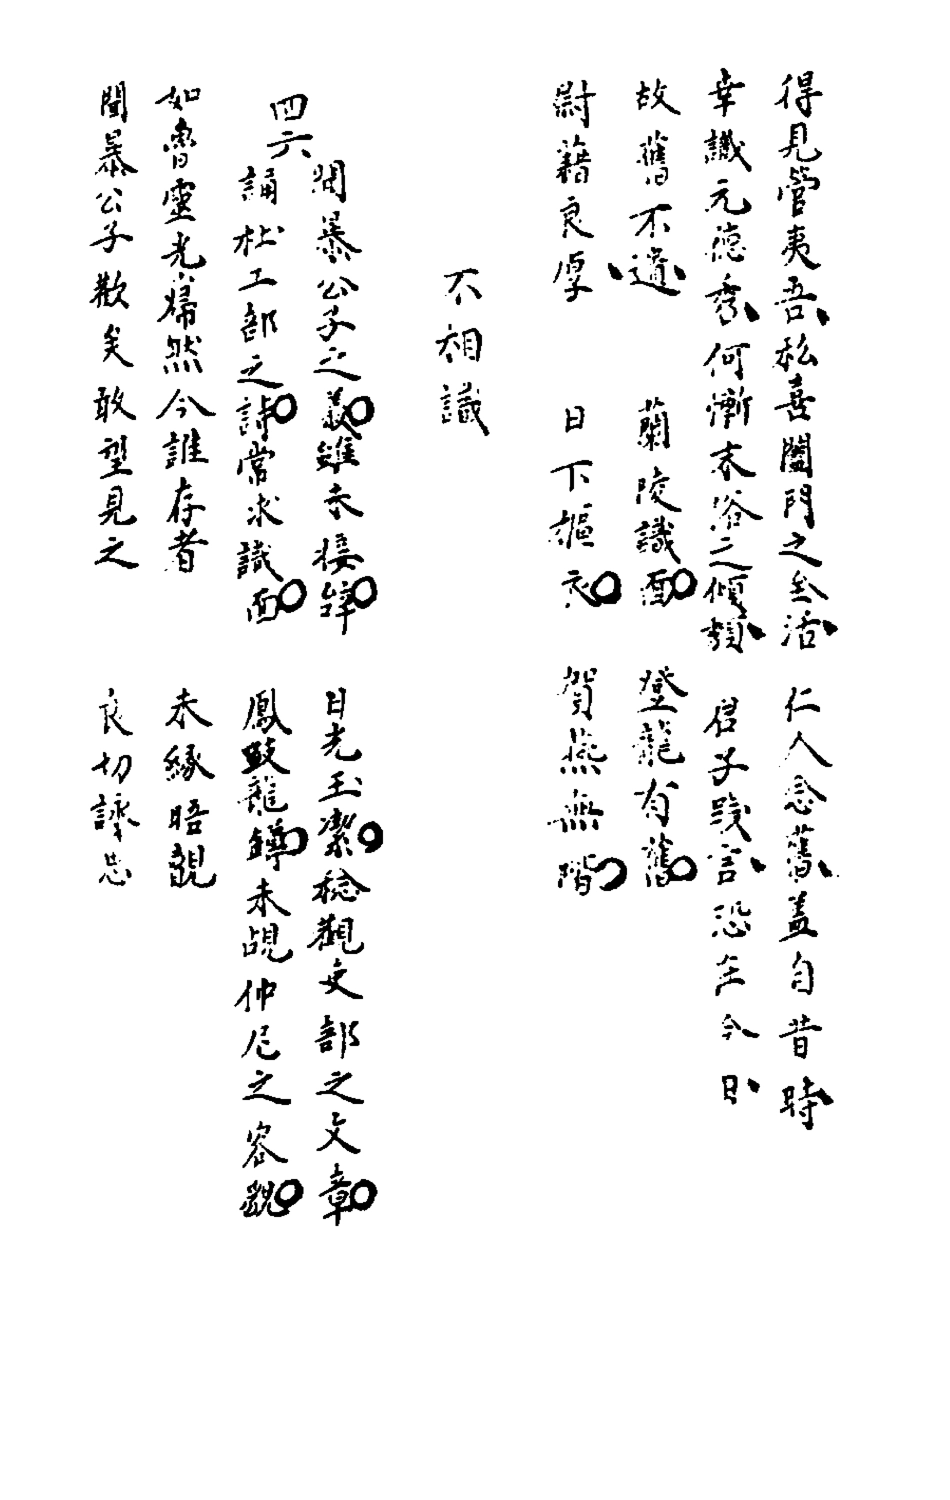 得見管夷吾私喜闔門之全活 仁人念舊蓋自昔時
幸識元德秀何慚末俗之傾頹 君子踐言恐在今日
故舊不遺 蘭陵識面 登龍有舊
尉藉良厚 日下摳衣 賀燕無階
不相識
四六
聞暴公子之義雖未接辭 日光玉潔稔觀吏部之文章
誦杜工部之詩常求識面 鳳跂龍蹲未覘仲尼之容貌
如魯靈光巋然今誰存者 未緣晤覿
聞暴公子歎矣敢望見之 良切詠思